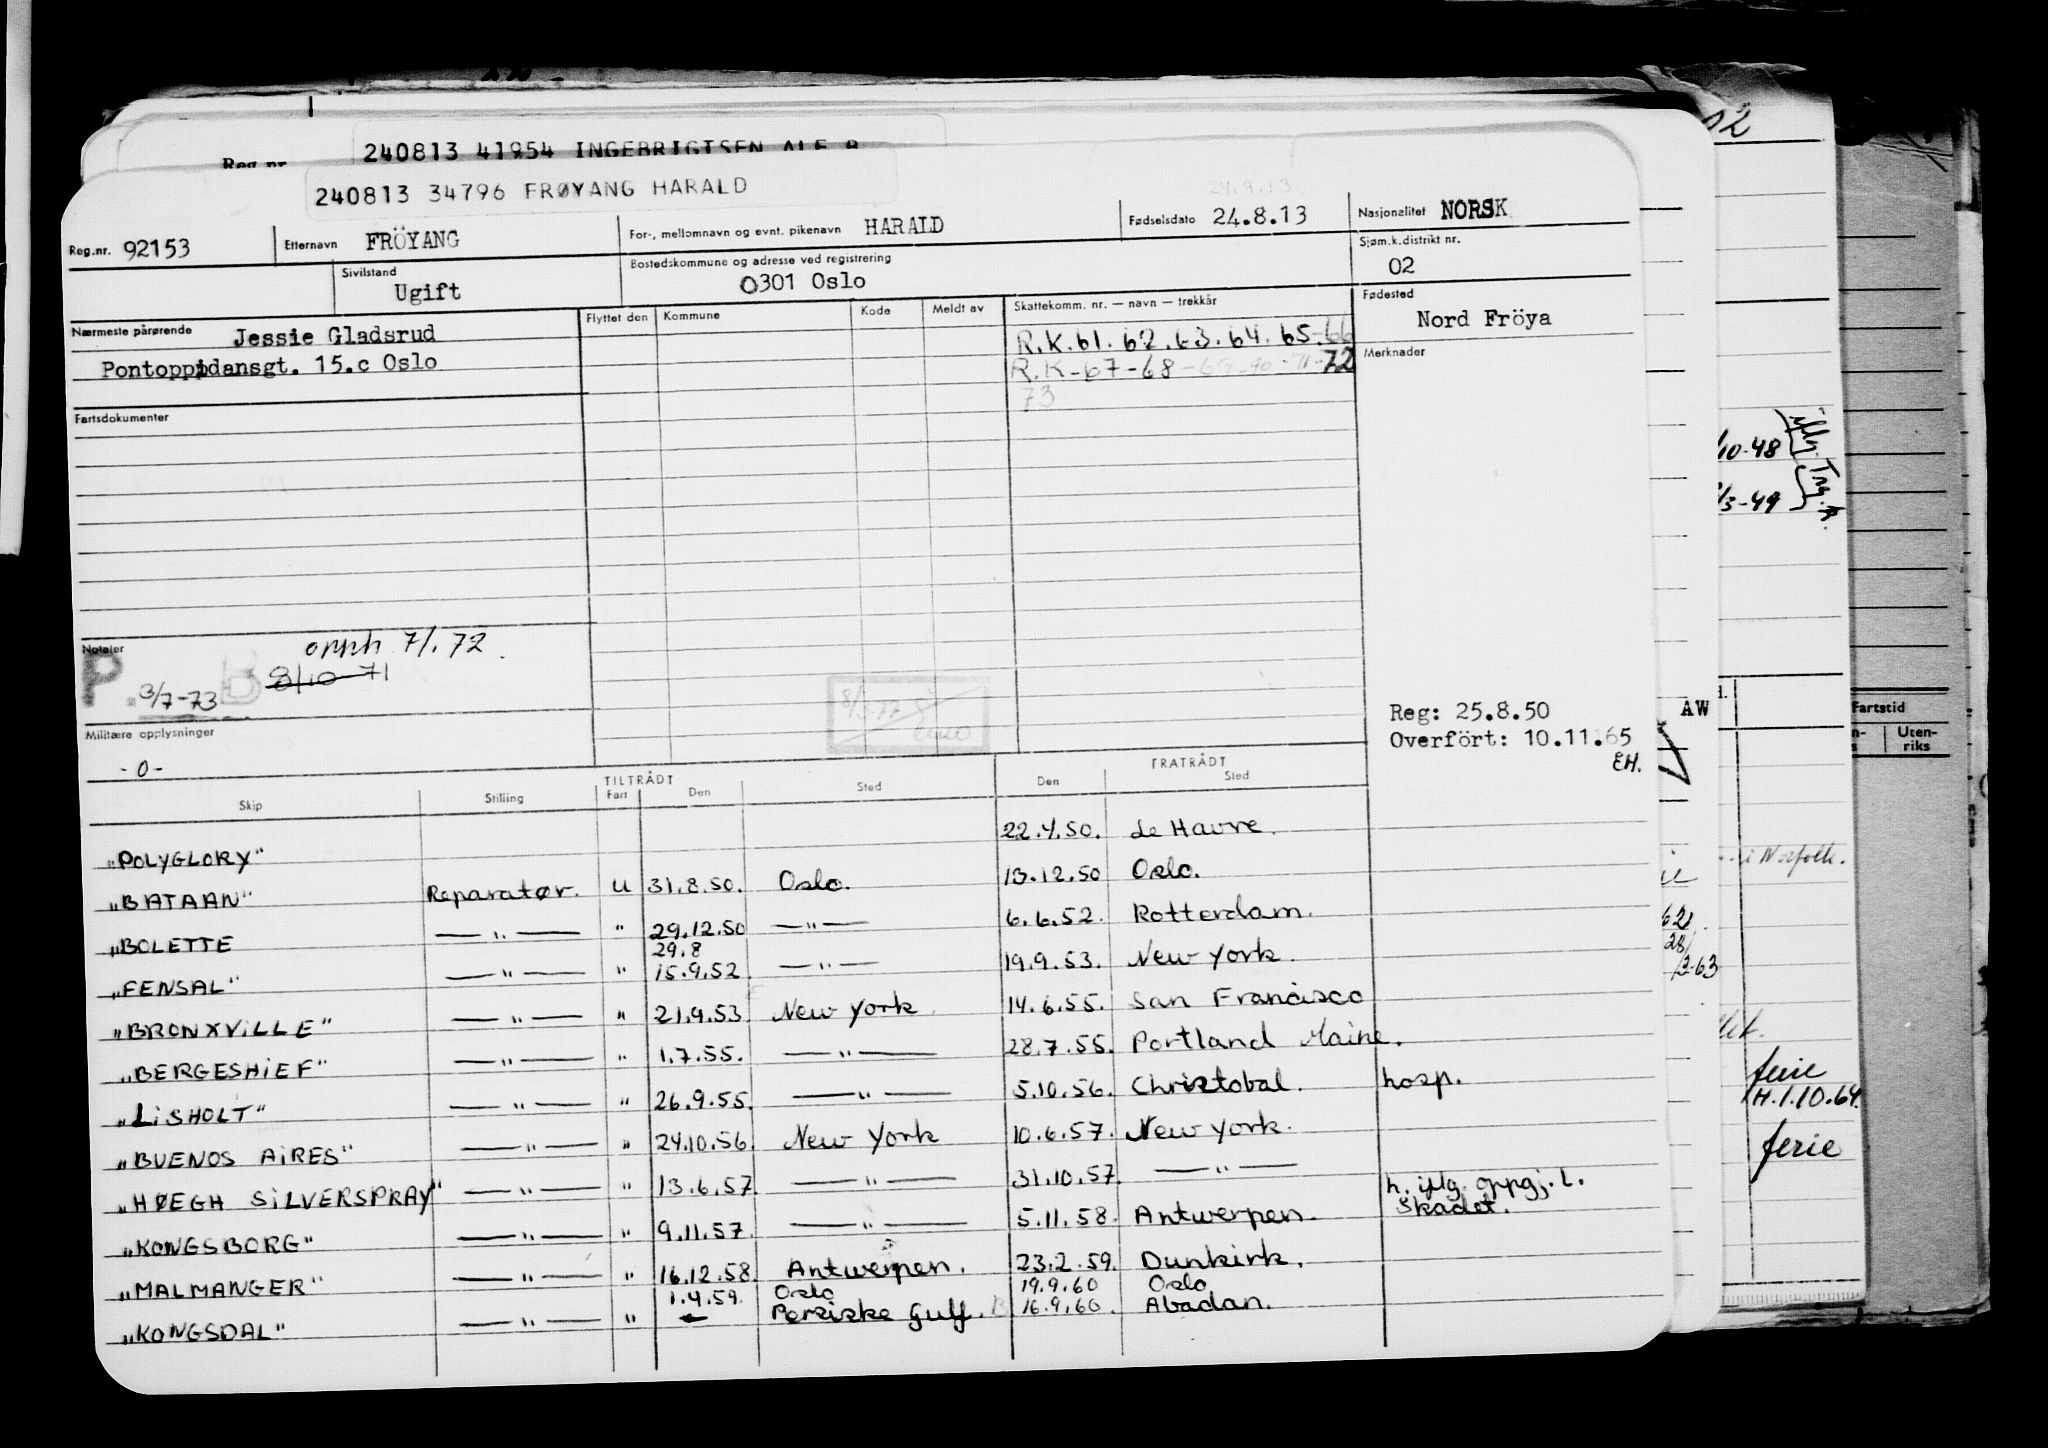 240813 41954 INGEBRIGTSEN ALF R
Reg.nr.
240813 34796 FRØYANG HARALD
Reg.nr. 92153 Etternavn FRÖYANG For-, mellomnavn og evnt. pikenavn HARALD Fødselsdato 24.8.13 Nasjonalitet NORSK
Sivilstand Ugift Bostedskommune og adresse ved registrering 0301 Oslo Sjøm.k.distrikt nr. 02
Nærmeste pårørende Jessie Gladsrud Flyttet den Kommune Kode Meldt av Skattekomm. nr. — navn — trekkår Fødested Nord Fröya
Pontoppidansgt. 15.c Oslo
R.K.61.62.63.64.65.66
R.K-67-68-69-70-71-72
73
Merknader
Fartsdokumenter
Notater
P. 3/7-73 B
8/10-71
Militære opplysninger
-0-
Reg: 25.8.50
Overfört: 10.11.65
EH.
TILTRÅDT FRATRÅDT
Skip Stilling Fart Den Sted Den Sted
"POLYGLORY" 22.4.50. Le Havre.
"BATAAN" Reparatør. U 31.8.50. Oslo. 13.12.50 Oslo.
"BOLETTE — " — " 29.12.50 — " — 6.6.52. Rotterdam.
29.8
"FENSAL" — " — " 15.9.52. — " — 19.9.53. New York.
"BRONXVILLE" — " — " 21.9.53 New York. 14.6.55. San Francisco
"BERGESHIEF" — " — " 1.7.55. — " — 28.7.55. Portland Maine.
"LISHOLT" — " — " 26.9.55. — " — 5.10.56. Christobal. hosp.
"BUENOS AIRES" — " — " 24.10.56. New York 10.6.57. New York.
"HØEGH SILVERSPRAY" — " — " 13.6.57. — " — 31.10.57. — " —
"KONGSBORG" — " — " 9.11.57. — " — 5.11.58. Antwerpen. h. iflg. oppgj. l.
skadet.
"MALMANGER" — " — " 16.12.58. Antwerpen. 23.2.59. Dunkirk.
1.4.59. Oslo 19.9.60 Oslo
"KONGSDAL" — " — " Persiske Gulf. 16.9.60. Abadan.
AW
Fartstid
Uten-
riks
10-48
3-49
i Norfolk.
ferie
H.1.10.64.
ferie